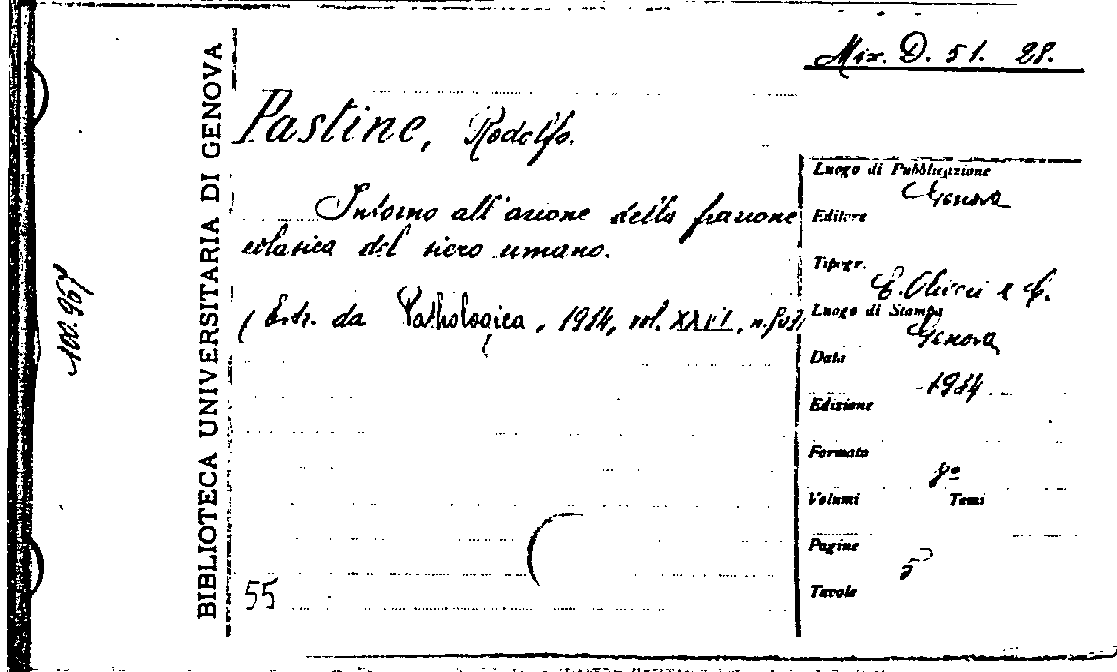 Mix. D. 51. 28.
BIBLIOTECA UNIVERSITARIA DI GENOVA
100.957
Pastine, Rodolfo.
Intorno all'azione della frazione
eolasica del siero umano.
( Estr. da Pathologica, 1934, vol. XXVI, n.
55
Luogo di Pubblicazione
Genova
Editore
Tipogr.
E. Olivieri e C.
Luogo di Stampa
Genova
Data
1934
Edizione
Formato
8º
Volumi Tomi
Pagine
5
Tavole